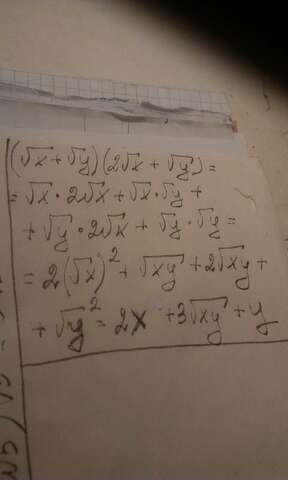 (√x + √y)(2√x + √y) =
= √x · 2√x + √x · √y +
+ √y · 2√x + √y · √y =
= 2(√x)² + √xy + 2√xy +
+ √y² = 2x + 3√xy + y